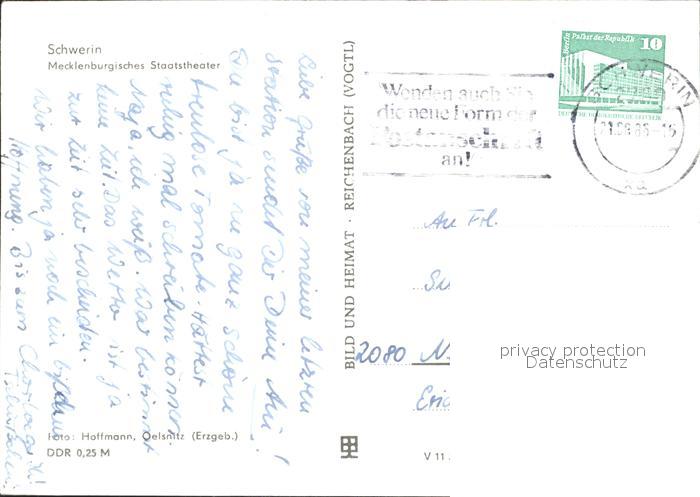 Schwerin
Mecklenburgisches Staatstheater
Liebe Grüße von meiner letzten
Station sendet Dir Deine Ani!
Du bist ja ne ganz schöne
treulose Tomate. Hättest
ruhig mal schreiben können.
Naja, ich weiß. War bestimmt
keine Zeit. Das Wetter ist ja
zur Zeit sehr bescheiden.
Wir haben ja noch ein bißchen
Hoffnung. Bis zum
Foto: Hoffmann, Oelsnitz (Erzgeb.)
DDR 0,25 M
BILD UND HEIMAT · REICHENBACH (VOGTL)
V 11
Wenden auch Sie
die neue Form der
Postanschrift
an!
Berlin Palast der Republik
10
DEUTSCHE DEMOKRATISCHE REPUBLIK
SCHWERIN
An Frl.
Su
2080 N.
Eric
privacy protection
Datenschutz